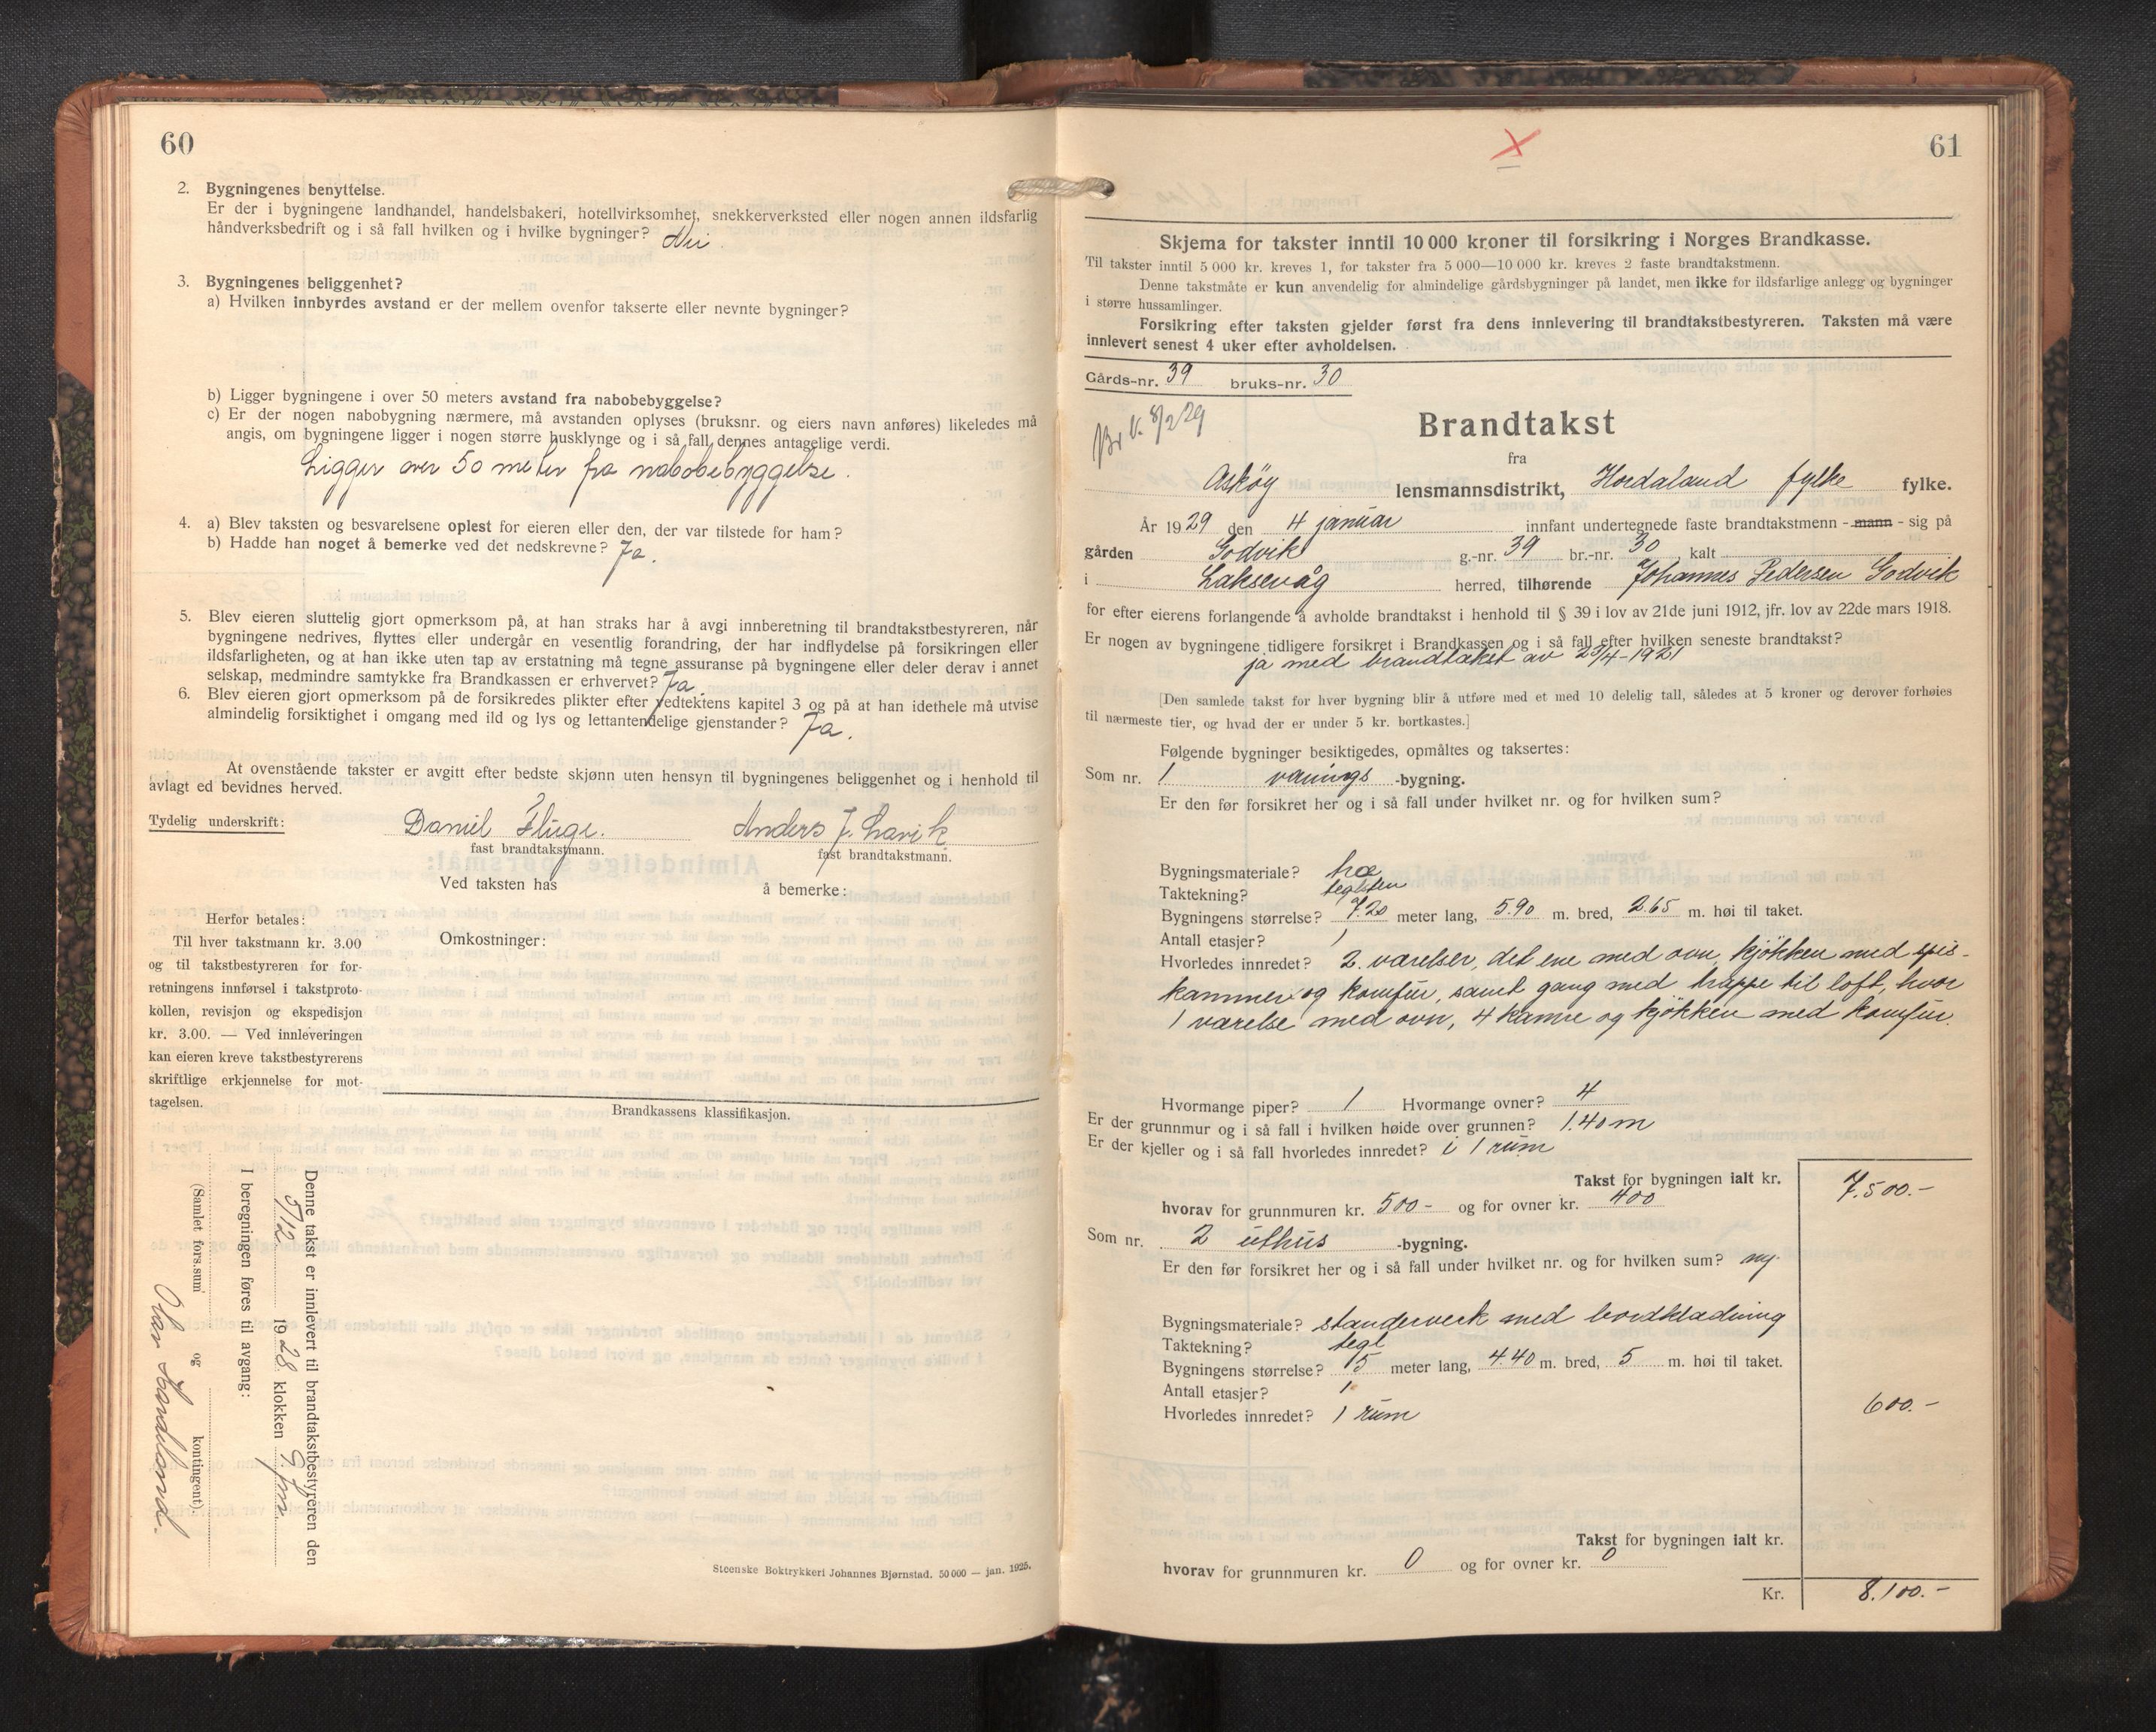 60
2. Bygningenes benyttelse.
Er der i bygningene landhandel, handelsbakeri, hotellvirksomhet, snekkerverksted eller nogen annen ildsfarlig
håndverksbedrift og i så fall hvilken og i hvilke bygninger? Nei
3. Bygningenes beliggenhet?
a) Hvilken innbyrdes avstand er der mellem ovenfor takserte eller nevnte bygninger?
b) Ligger bygningene i over 50 meters avstand fra nabobebyggelse?
c) Er der nogen nabobygning nærmere, må avstanden oplyses (bruksnr. og eiers navn anføres) likeledes må
angis, om bygningene ligger i nogen større husklynge og i så fall dennes antagelige verdi.
Ligger over 50 meter fra nabobebyggelse.
4. a) Blev taksten og besvarelsene oplest for eieren eller den, der var tilstede for ham?
b) Hadde han noget å bemerke ved det nedskrevne? Ja.
5. Blev eieren sluttelig gjort opmerksom på, at han straks har å avgi innberetning til brandtakstbestyreren, når
bygningene nedrives, flyttes eller undergår en vesentlig forandring, der har indflydelse på forsikringen eller
ildsfarligheten, og at han ikke uten tap av erstatning må tegne assuranse på bygningene eller deler derav i annet
selskap, medmindre samtykke fra Brandkassen er erhvervet? Ja.
6. Blev eieren gjort opmerksom på de forsikredes plikter efter vedtektens kapitel 3 og på at han idethele må utvise
almindelig forsiktighet i omgang med ild og lys og lettantendelige gjenstander? Ja.
At ovenstående takster er avgitt efter bedste skjønn uten hensyn til bygningenes beliggenhet og i henhold til
avlagt ed bevidnes herved.
Tydelig underskrift: Daniel Fluge. Anders J. Lavik
fast brandtakstmann. fast brandtakstmann.
Ved taksten has å bemerke:
Herfor betales:
Til hver takstmann kr. 3.00
og til takstbestyreren for for-
retningens innførsel i takstproto-
kollen, revisjon og ekspedisjon
kr. 3.00. — Ved innleveringen
kan eieren kreve takstbestyrerens
skriftlige erkjennelse for mot-
tagelsen.
Omkostninger:
Brandkassens klassifikasjon.
Denne takst er innlevert til brandtakstbestyreren den
5/12 1928 klokken 9 fm.
I beregningen føres til avgang:
(Samlet fors.sum og kontingent)
Olav
Steenske Boktrykkeri Johannes Bjørnstad. 50 000 — jan. 1925.
61
X
Skjema for takster inntil 10 000 kroner til forsikring i Norges Brandkasse.
Til takster inntil 5 000 kr. kreves 1, for takster fra 5 000—10 000 kr. kreves 2 faste brandtakstmenn.
Denne takstmåte er kun anvendelig for almindelige gårdsbygninger på landet, men ikke for ildsfarlige anlegg og bygninger
i større hussamlinger.
Forsikring efter taksten gjelder først fra dens innlevering til brandtakstbestyreren. Taksten må være
innlevert senest 4 uker efter avholdelsen.
Gårds-nr. 39 bruks-nr. 30
Br. v. 8/2 29
Brandtakst
fra
Askøy lensmannsdistrikt, Hordaland fylke fylke.
År 1929 den 4 januar innfant undertegnede faste brandtakstmenn - mann - sig på
gården Godvik g.-nr. 39 br.-nr. 30, kalt
i Laksevåg herred, tilhørende Johannes Pedersen Godvik
for efter eierens forlangende å avholde brandtakst i henhold til § 39 i lov av 21de juni 1912, jfr. lov av 22de mars 1918.
Er nogen av bygningene tidligere forsikret i Brandkassen og i så fall efter hvilken seneste brandtakst?
ja med brandtakst av 25/4-1921
[Den samlede takst for hver bygning blir å utføre med et med 10 delelig tall, således at 5 kroner og derover forhøies
til nærmeste tier, og hvad der er under 5 kr. bortkastes.]
Følgende bygninger besiktigedes, opmåltes og taksertes:
Som nr. 1 vånings -bygning.
Er den før forsikret her og i så fall under hvilket nr. og for hvilken sum?
Bygningsmateriale? træ
Taktekning? teglsten
Bygningens størrelse? 7.20 meter lang, 5.90 m. bred, 2.65 m. høi til taket.
Antall etasjer? 1
Hvorledes innredet? 2 værelser, det ene med ovn, kjøkken med spis-
kammer og komfur, samt gang med trappe til loft, hvor
1 værelse med ovn, 4 kamre og kjøkken med komfur.
Hvormange piper? 1 Hvormange ovner? 4
Er der grunnmur og i så fall i hvilken høide over grunnen? 1.40 m
Er der kjeller og i så fall hvorledes innredet? i 1 rum
Takst for bygningen ialt kr. 7.500.-
hvorav for grunnmuren kr. 500- og for ovner kr. 400
Som nr. 2 uthus -bygning.
Er den før forsikret her og i så fall under hvilket nr. og for hvilken sum? ny.
Bygningsmateriale? standerverk med bordklædning
Taktekning? tegl
Bygningens størrelse? 5 meter lang, 4.40 m. bred, 5 m. høi til taket.
Antall etasjer? 1
Hvorledes innredet? 1 rum
600.-
Takst for bygningen ialt kr.
hvorav for grunnmuren kr. 0 og for ovner kr. 0
Kr. 8.100.-